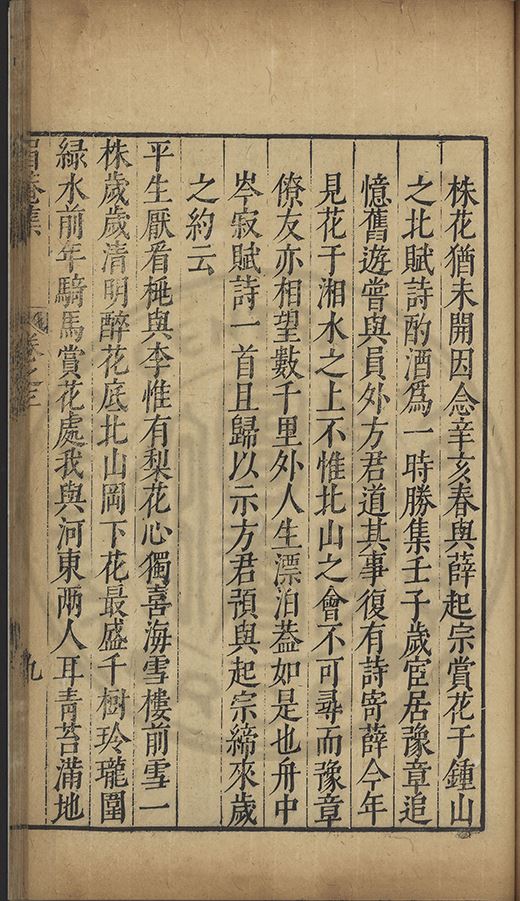 株花猶未開因念辛亥春與薛起宗賞花于鍾山
之北賦詩酌酒爲一時勝集壬子歲宦居豫章追
憶舊遊嘗與員外方君道其事復有詩寄薛今年
見花于湘水之上不惟北山之會不可尋而豫章
僚友亦相望數千里外人生漂泊蓋如是也舟中
岑寂賦詩一首且歸以示方君預與起宗締來歲
之約云
平生厭看桃與李惟有梨花心獨喜海雪樓前雪一
株歲歲清明醉花底北山岡下花最盛千樹玲瓏圍
緑水前年騎馬賞花處我與河東兩人耳青苔滿地
卷之三
九